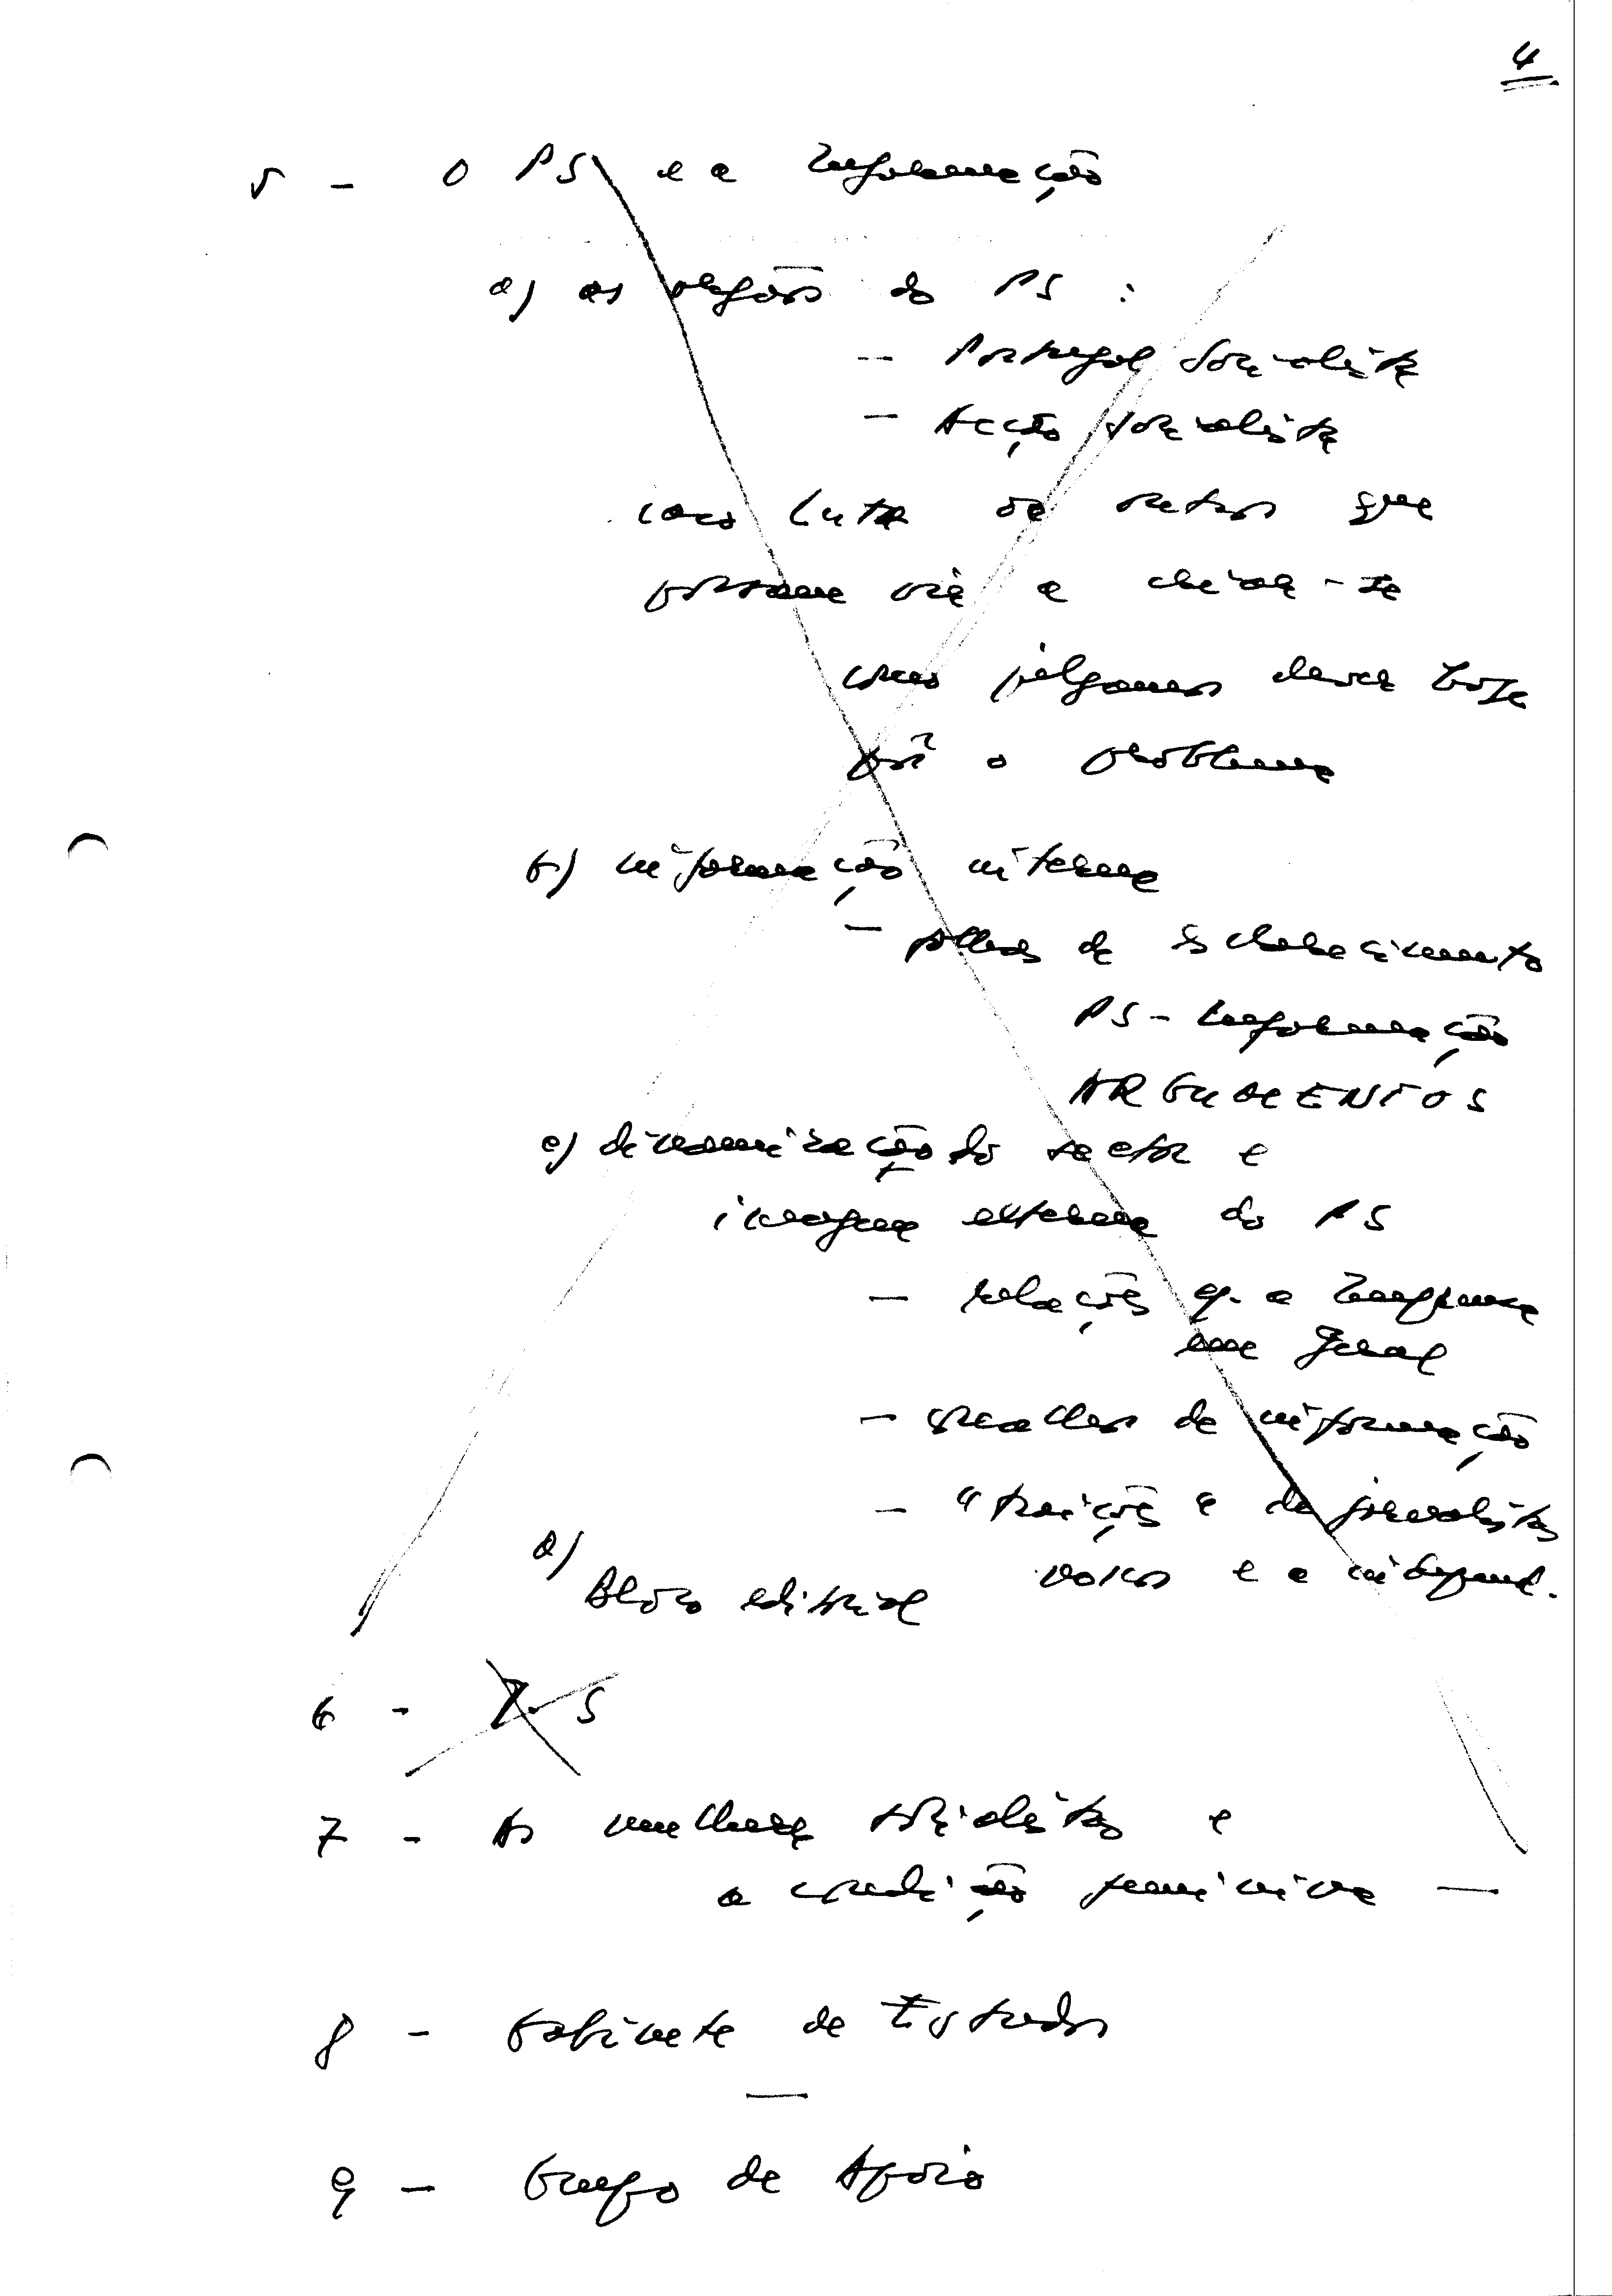 4
5 - O PS e a Informação
a) os orgãos do PS :
- Portugal Socialista
- Acção Socialista
caso Luta ou outros que
possam vir a criar-se
como julgamos dever hoje
pôr o problema
b) informação interna
- folhas de Esclarecimento
PS - Informação
ARGUMENTOS
c) dinamização do sector e
imagem externa do PS
- relações c/ a Imprensa
em geral
- conselhos de informação
- "traições" de jornalistas
nossos e a independ.
d) Bloco editorial
6 - J. S
7 - As mulheres socialistas e
a condição feminina —
8 - Gabinete de Estudos
9 - Grupo de Apoio